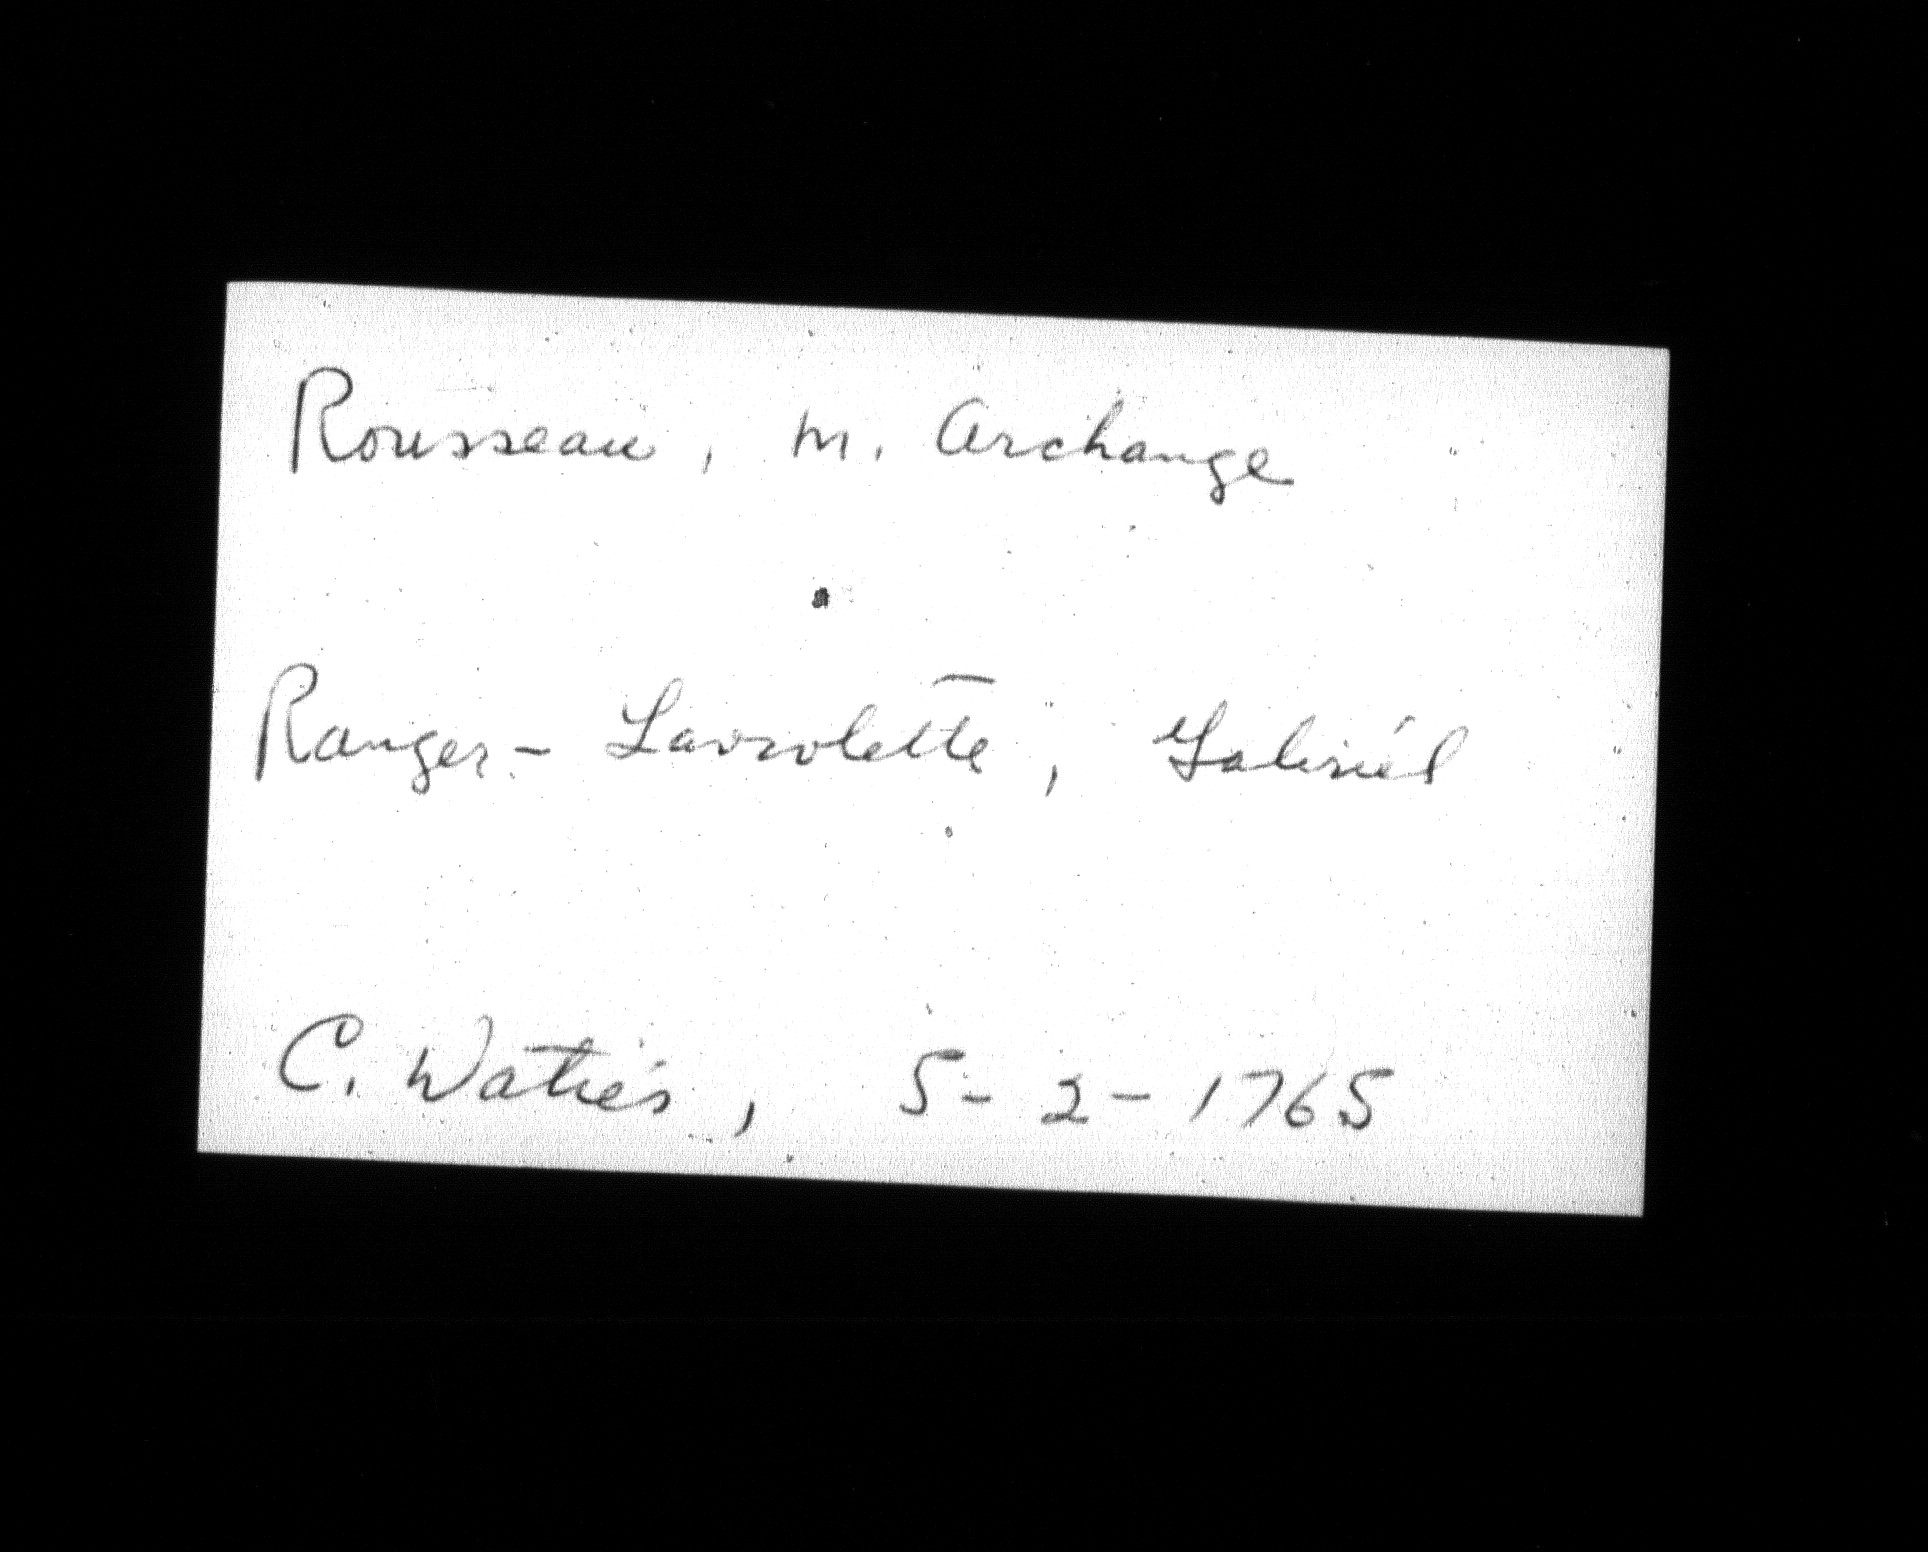 Rousseau, M. Archange
Ranger-Laviolette, Gabriel
C. Watiés, 5-2-1765